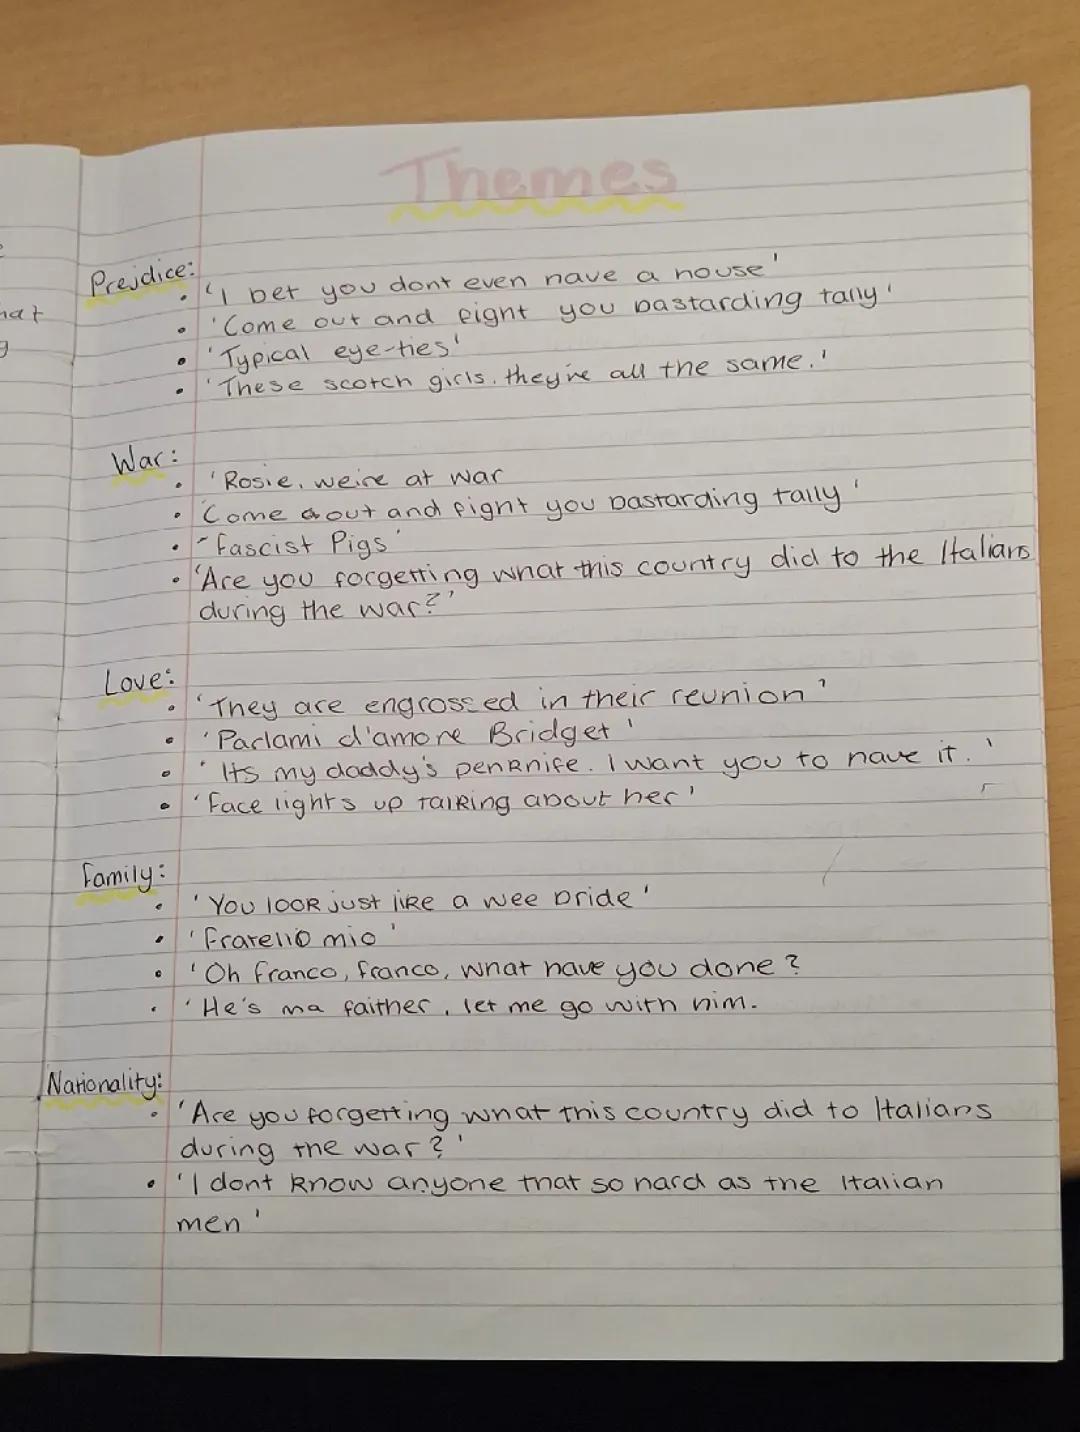 Themes
hat
g
Prejdice:
• 'I bet you dont even have a house'
• 'Come out and fight you bastarding tally'
• 'Typical eye-ties'
• 'These scotch girls, they're all the same.'
War:
• 'Rosie, we're at war
• 'Come out and fight you bastarding tally'
• 'Fascist Pigs'
• 'Are you forgetting what this country did to the Italians
during the war?'
Love:
• 'They are engrossed in their reunion'
• 'Parlami d'amore Bridget'
• 'Its my daddy's penknife. I want you to have it.'
• 'Face lights up talking about her'
Family:
• 'You look just like a wee bride'
• 'Fratello mio'
• 'Oh Franco, Franco, what have you done?
• 'He's ma faither, let me go with him.
Nationality:
• 'Are you forgetting what this country did to Italians
during the war?'
• 'I dont know anyone that so hard as the Italian
men'